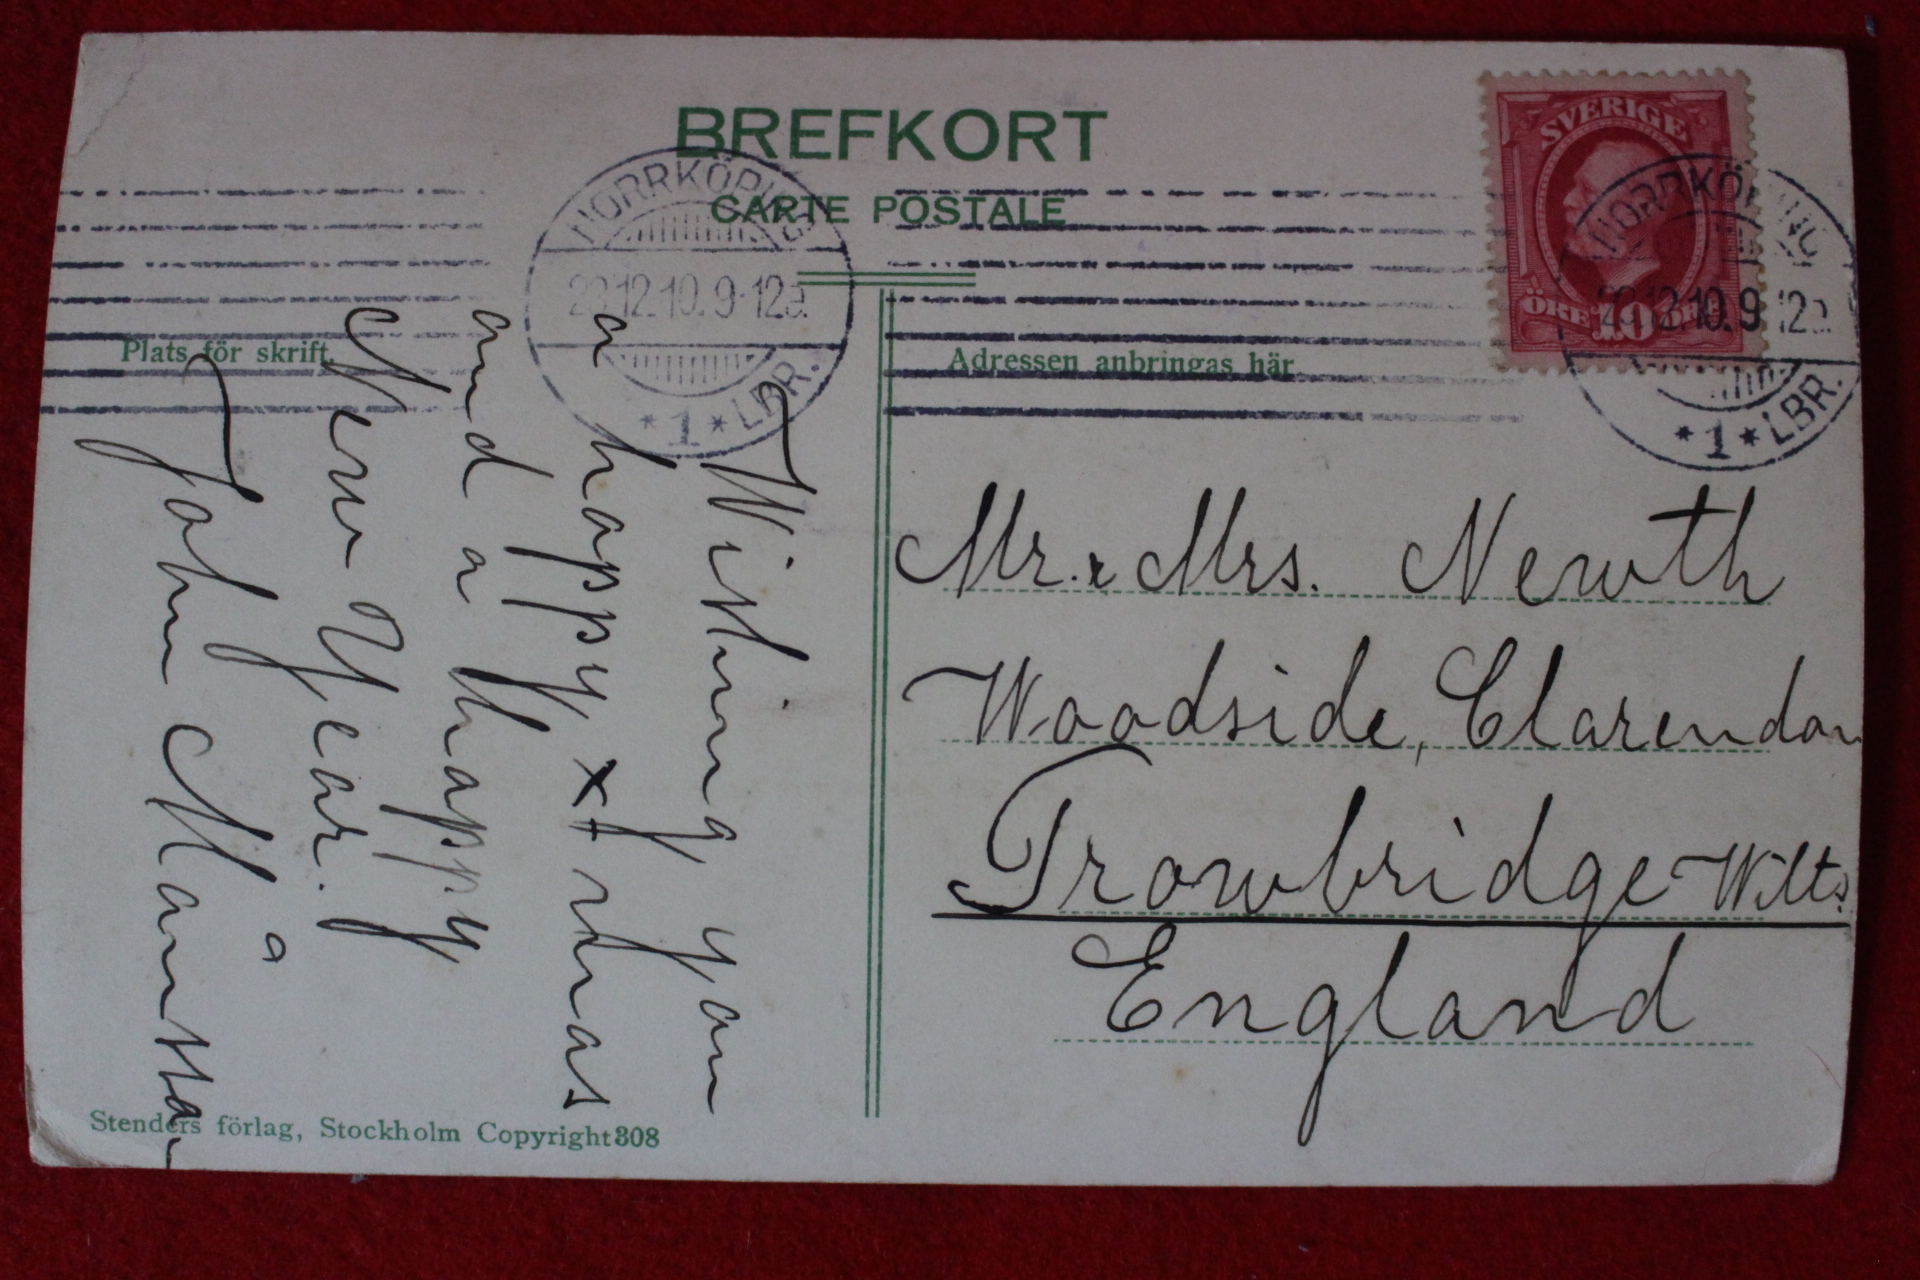 BREFKORT
CARTE POSTALE
NORRKÖPING
29.12.10.9-12a.
*1*LBR.
SVERIGE
ÖRE 10 ÖRE
NORRKÖPING
29.12.10.9-12a.
*1*LBR.
Plats för skrift.
Adressen anbringas här
Wishing you
a happy x xmas
and a Happy
New Year.
John Månsson
Mr. & Mrs. Newth
Woodside, Clarendon
Trowbridge Wilts.
England
Stenders förlag, Stockholm Copyright 308